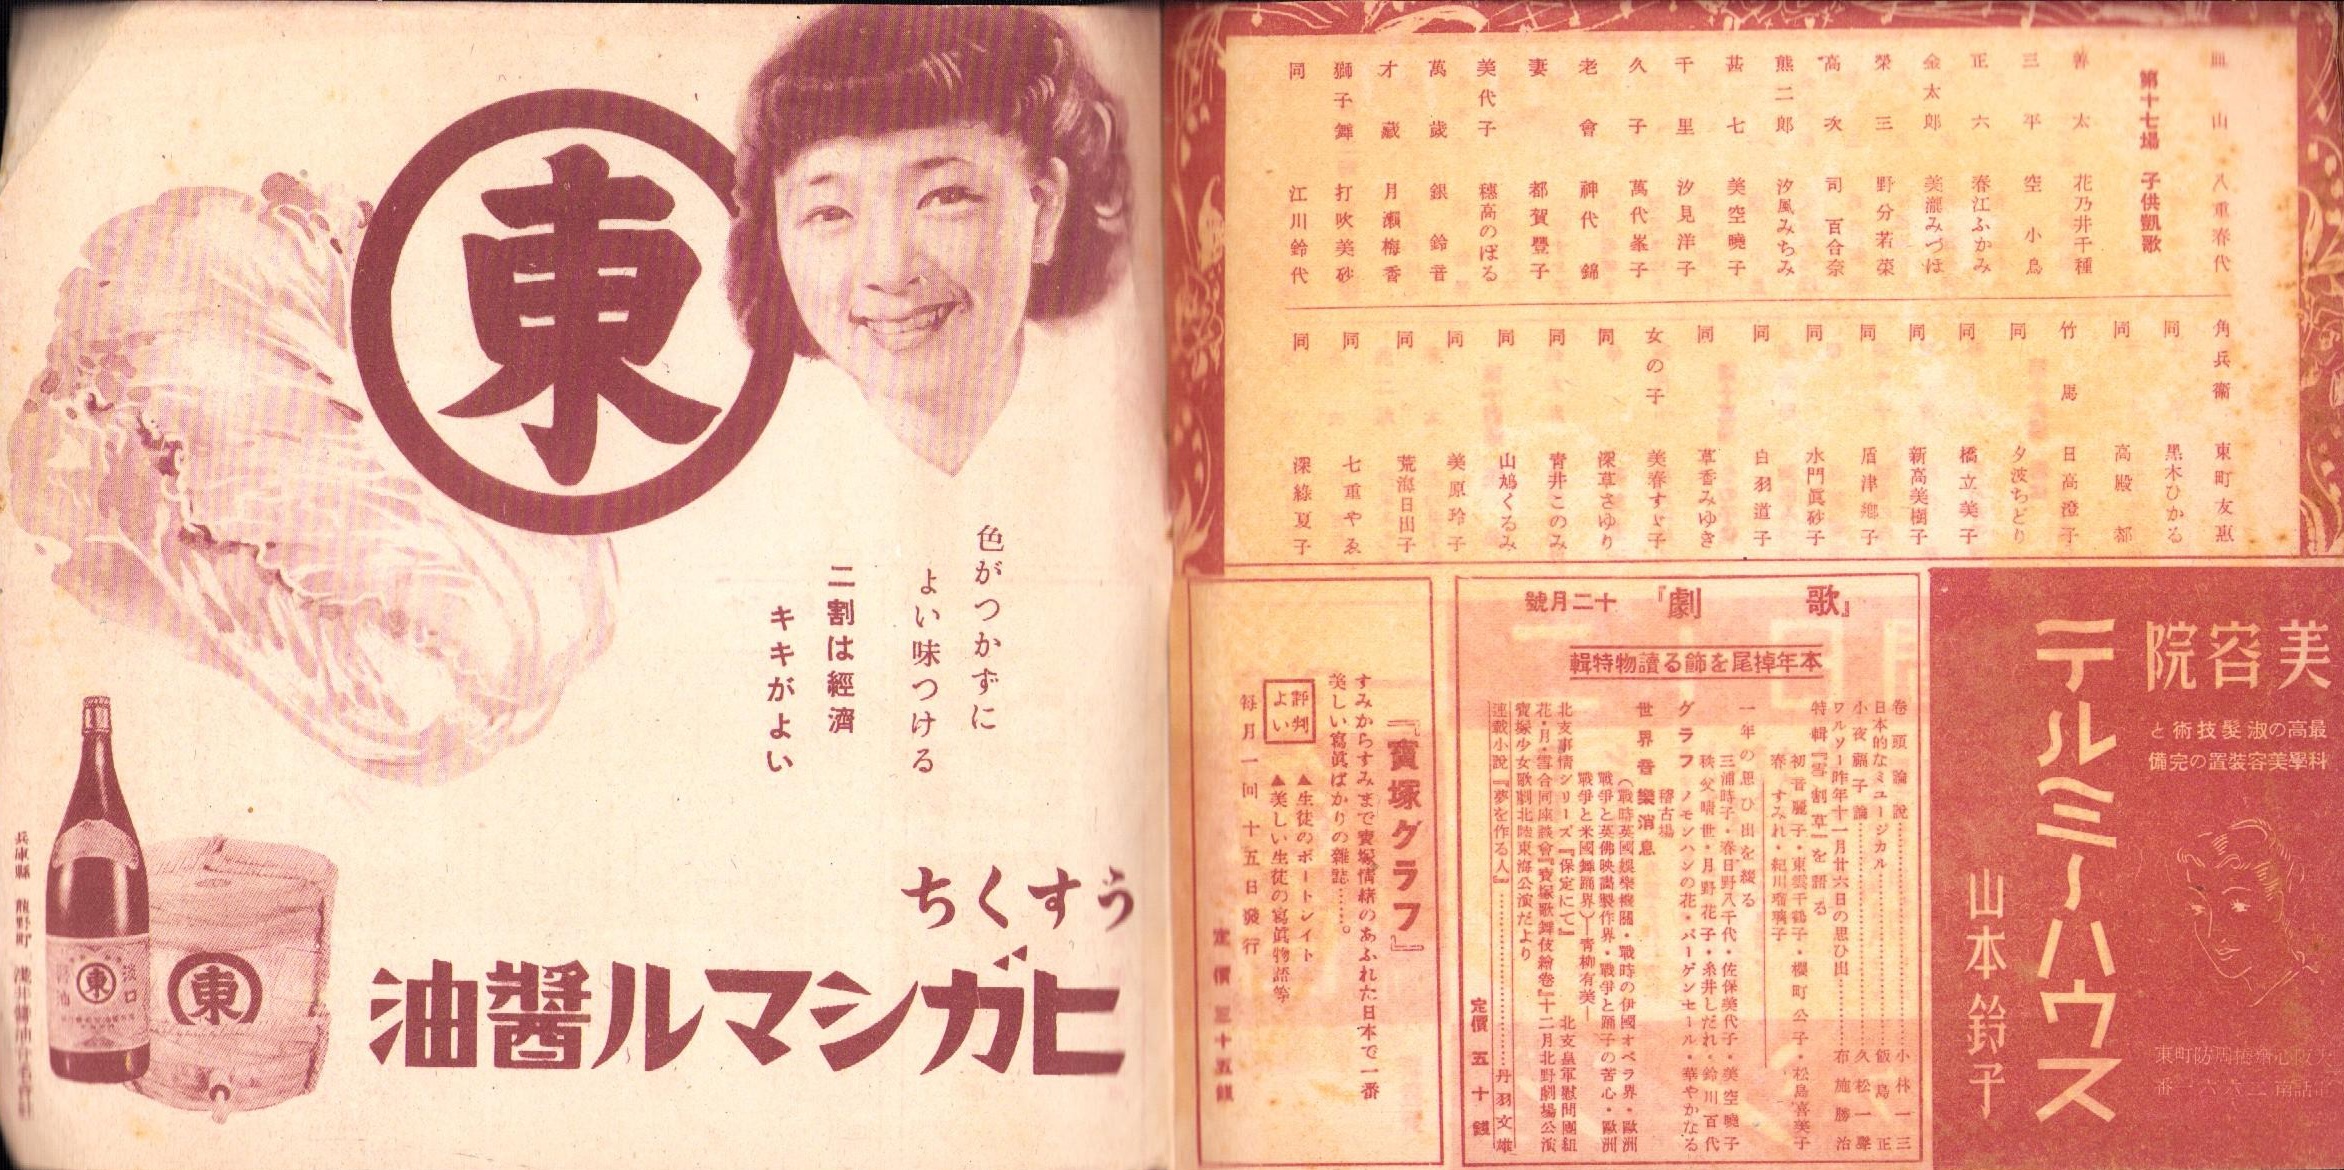 皿山 八重春代
第十七場 子供凱歌
善太 花乃井千種
三平 空小鳥
正六 春江ふかみ
金太郎 美瀧みづほ
榮三 野分若菜
高次 司百合奈
熊二郎 汐風みちみ
甚七 美空曉子
千里 汐見洋子
久子 萬代峯子
老會 神代錦
妻 都賀豐子
美代子 穗高のぼる
萬歲 銀鈴音
才藏 月瀬梅香
獅子舞 打吹美砂
同 江川鈴代
角兵衞 東町友惠
同 黒木ひかる
同 高殿都
竹馬 日高澄子
同 夕波ちどり
同 橋立美子
同 新高美樹子
同 盾津鄕子
同 水門眞砂子
同 白羽道子
同 草香みゆき
女の子 美春すゞ子
同 深草さゆり
同 青井このみ
同 山鳩くるみ
同 美原玲子
同 荒海日出子
同 七重やゑ
同 深綠夏子
美容院
テルミーハウス
山本鈴子
最高の淑髮技術と
科學美容裝置の完備
『歌劇』十二月號
本年掉尾を飾る讀物特輯
卷頭論說……小林一三
日本的なミュージカル……飯島正
小夜福子論……久松一聲
ワルソー昨年十一月廿六日の思ひ出……布施勝治
特輯『雪割草』を語る
初音麗子・東雲千鶴子・櫻町公子・松島喜美子
春すみれ・紀川瑠璃子
一年の思ひ出を綴る
三浦時子・春日野八千代・佐保美代子・美空曉子
秩父晴世・月野花子・糸井しだれ・鈴川百代
グラフ ノモンハンの花・バーゲンセール・華やかなる
稽古場
世界音樂消息
(戰時英國娛樂機關・戰時の伊國オペラ界・歐洲
戰爭と英佛映畵製作界・戰爭と踊子の苦心・歐洲
戰爭と米國舞踊界)―青柳有美―
北支事情シリーズ『保定にて』 北支皇軍慰問團組
花・月・雪合同座談會『寶塚歌舞伎繪卷』十二月北野劇場公演
寶塚少女歌劇北陸東海公演だより
連載小說『夢を作る人』……丹羽文雄
定價五十錢
『寶塚グラフ』
すみからすみまで寶塚情緖のあふれた日本で一番
美しい寫眞ばかりの雜誌……。
評判よい
▲生徒のポートレイト
▲美しい生徒の寫眞物語等
每月一回十五日發行
定價三十五錢
東
色がつかずに
よい味つける
二割は經濟
キキがよい
うすくち
ヒガシマル醬油
東
淡口
東
兵庫縣 龍野町 淺井醬油合名會社